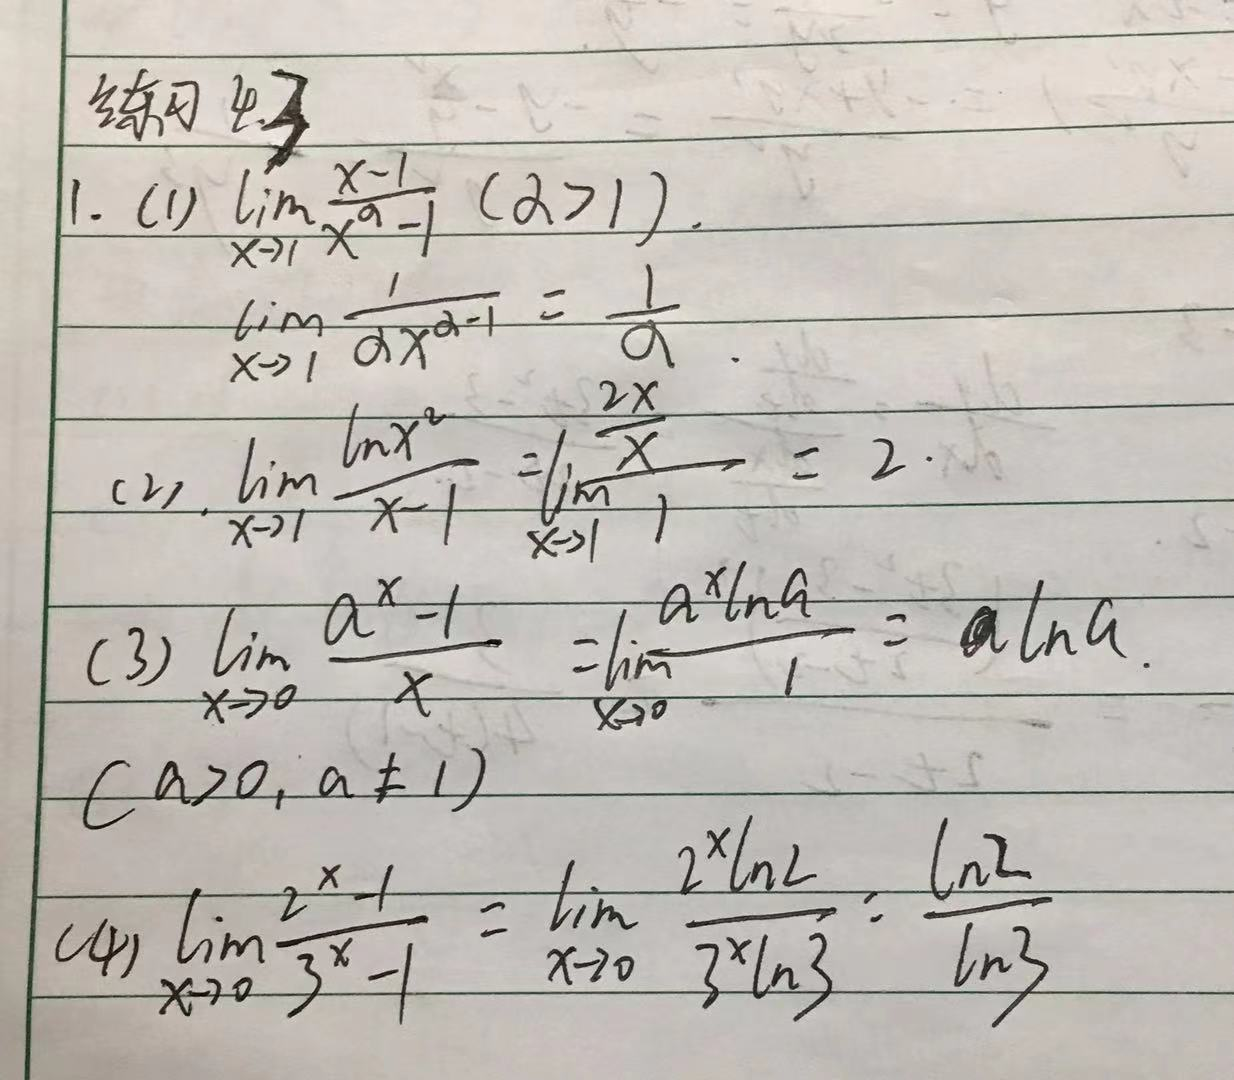 练习 4.3
1. (1) lim x→1 (x-1)/(x^α-1) (α>1).
lim x→1 1/(αx^(α-1)) = 1/α.
(2). lim x→1 lnx²/(x-1) = lim x→1 (2x/x)/1 = 2.
(3) lim x→0 (a^x-1)/x = lim x→0 (a^x lna)/1 = a lna.
(a>0, a≠1)
(4) lim x→0 (2^x-1)/(3^x-1) = lim x→0 (2^x ln2)/(3^x ln3) = ln2/ln3